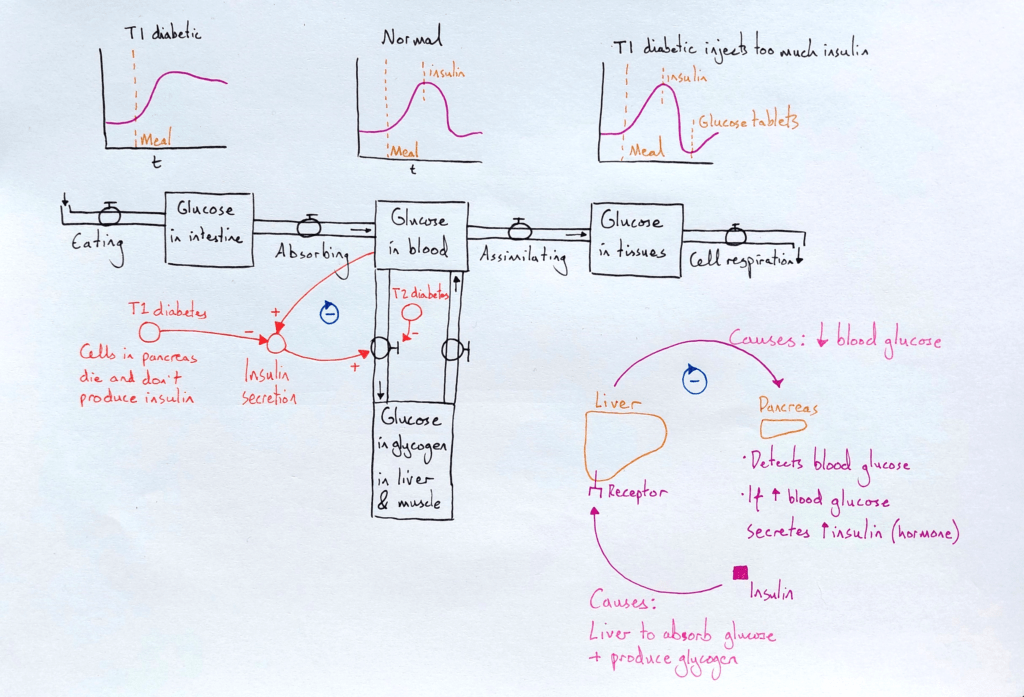 T1 diabetic
Meal
t
Normal
insulin
Meal
t
T1 diabetic injects too much insulin
insulin
Glucose tablets
Meal
Eating
Glucose
in intestine
Absorbing
Glucose
in blood
Assimilating
Glucose
in tissues
Cell respiration
T1 diabetes
Cells in pancreas
die and don't
produce insulin
-
+
Insulin
secretion
-
+
T2 diabetes
-
Glucose
in glycogen
in liver
& muscle
Causes: ↓ blood glucose
-
Liver
Receptor
Pancreas
· Detects blood glucose
· If ↑ blood glucose
secretes ↑ insulin (hormone)
Insulin
Causes:
Liver to absorb glucose
+ produce glycogen